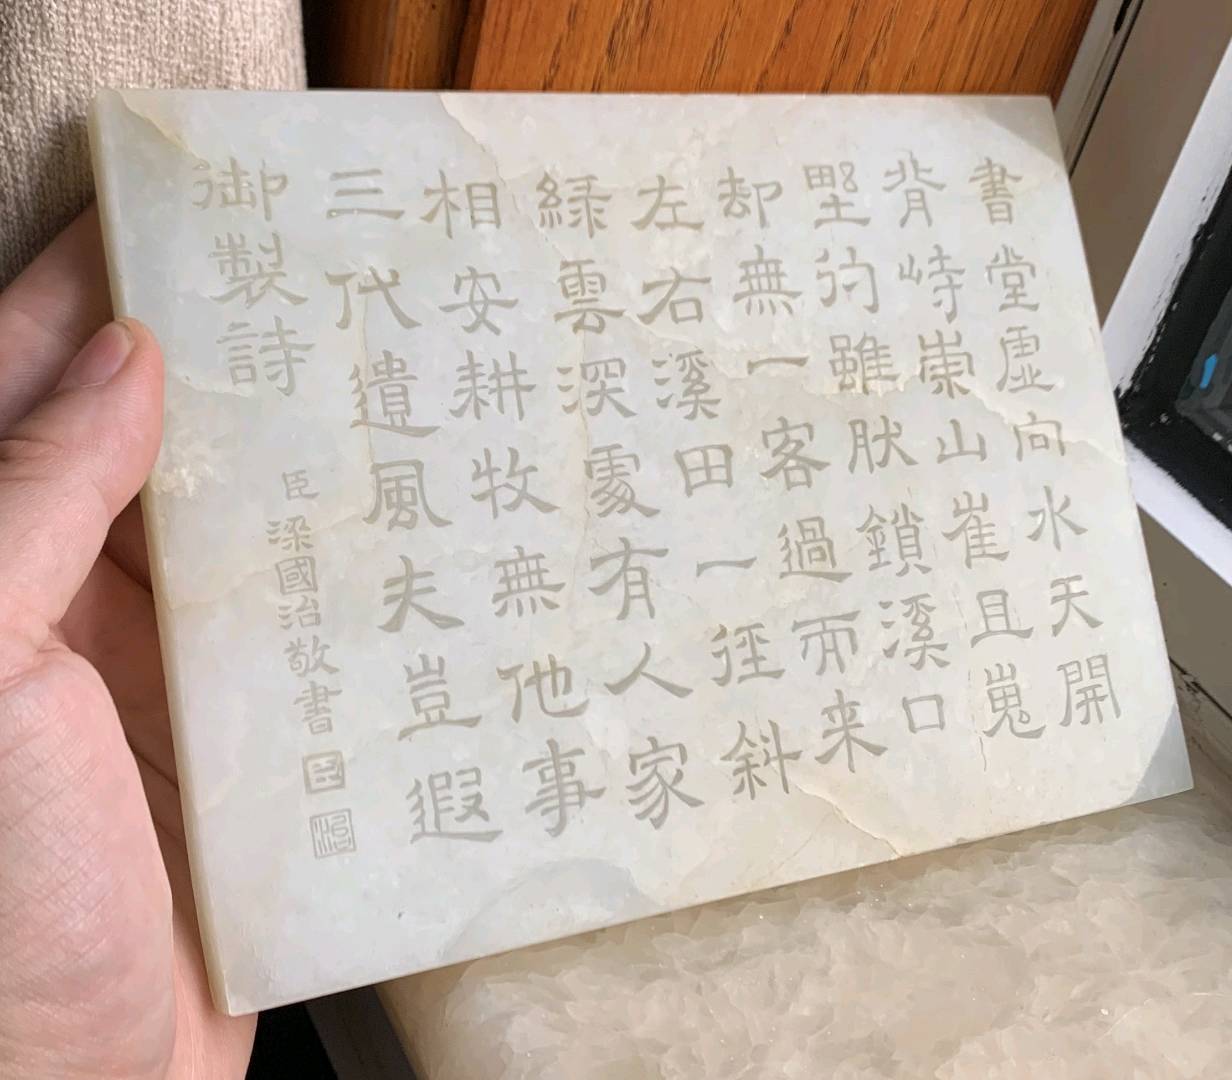 書堂虛向水天開
背峙崇山崔且嵬
墅彴雖肰鎖溪口
却無一客過而来
左右溪田一徑斜
綠雲深處有人家
相安耕牧無他事
三代遺風夫豈遐
御製詩
臣梁國治敬書
臣
治